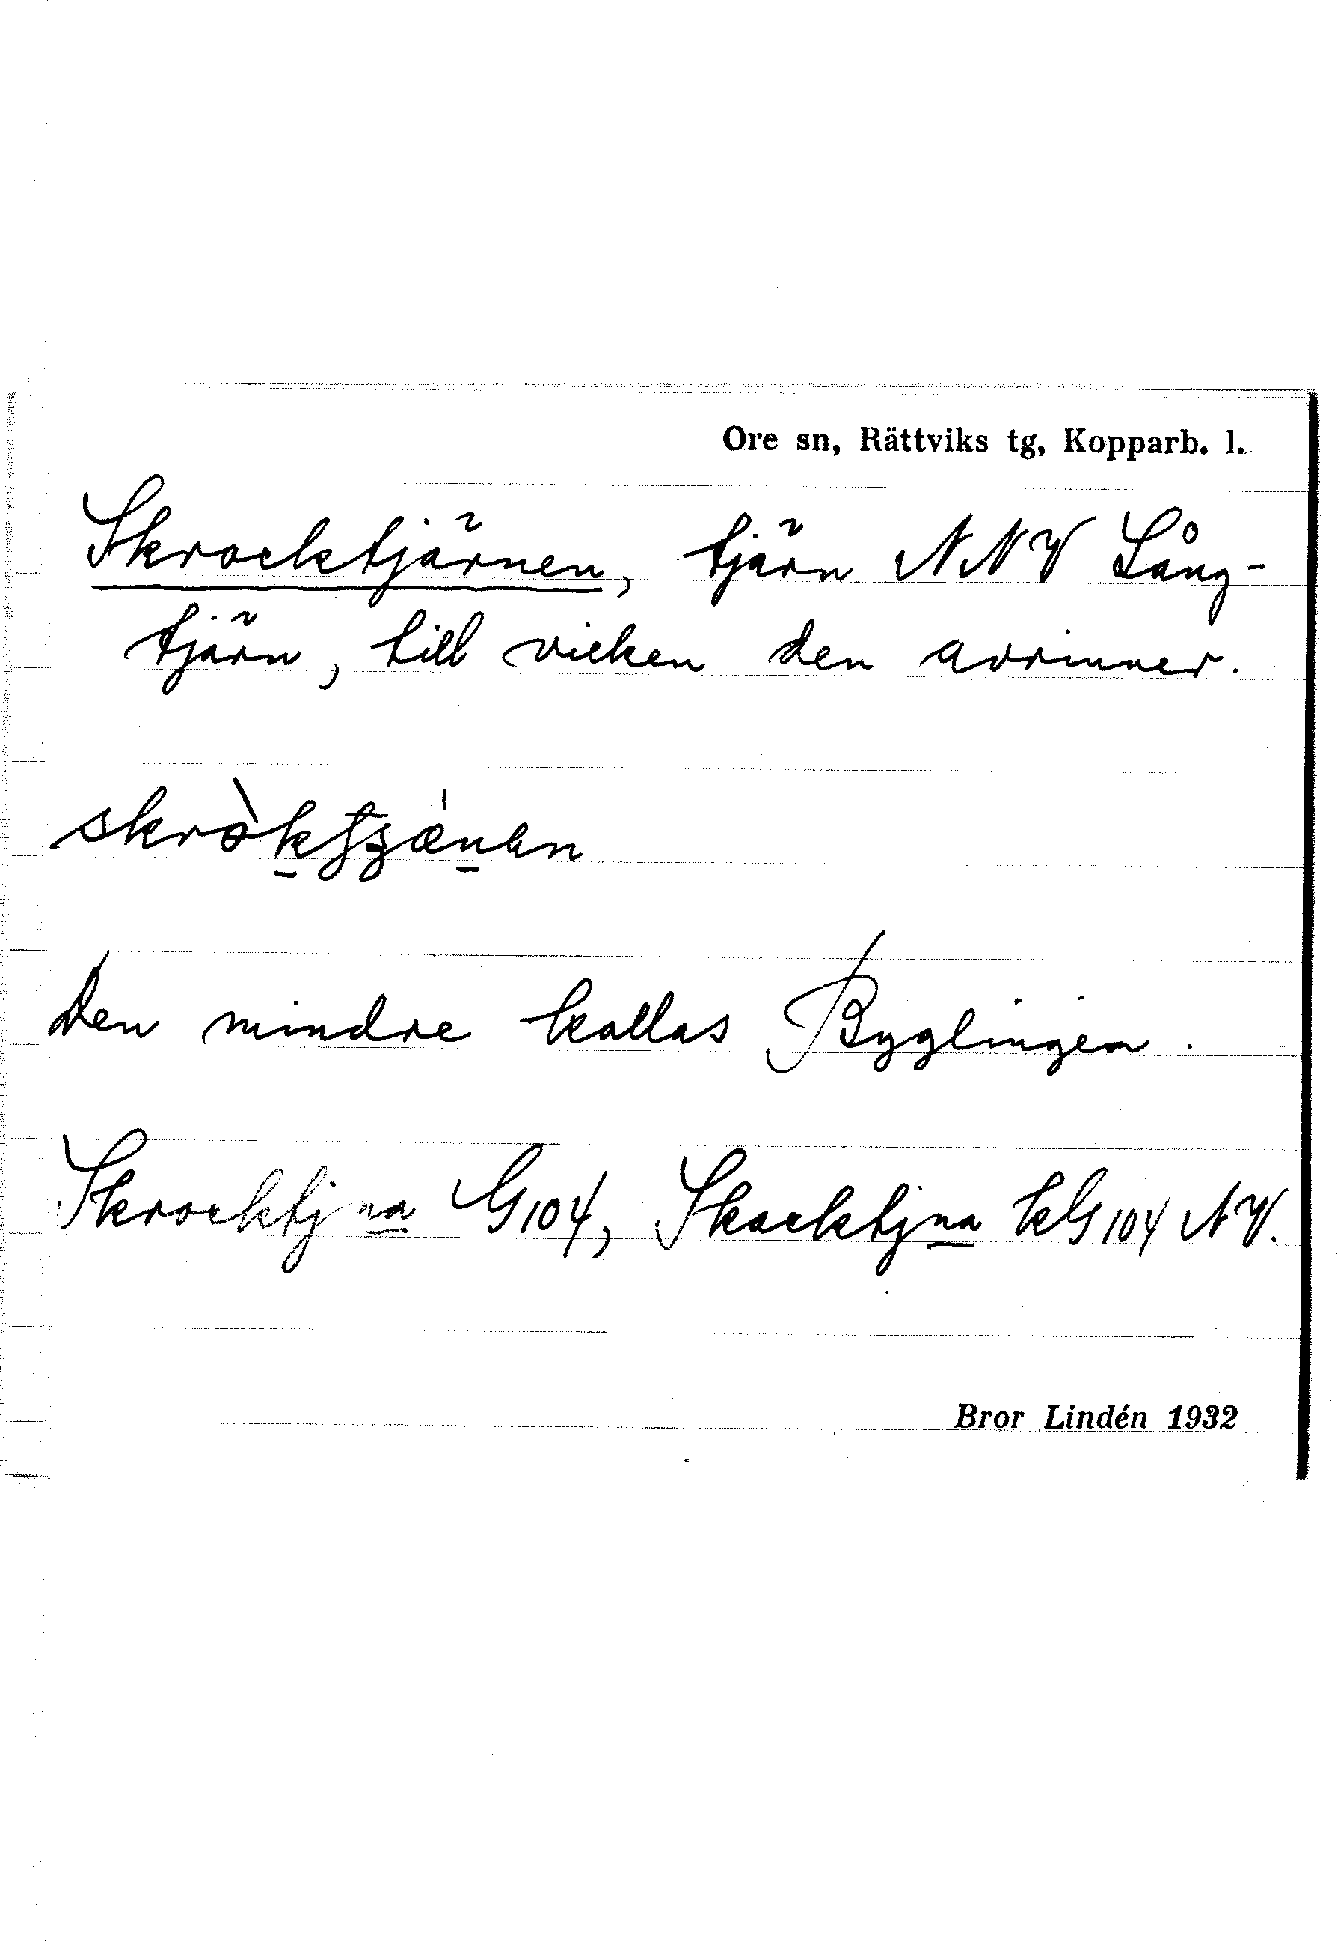 Ore sn, Rättviks tg, Kopparb. l.
Skrocktjärnen, tjärn NNV Lång-
tjärn, till vicken den avrinner.
Den mindre kallas Byglingen.
Skrocktjna G104, Skocktjna kG104 NV.
Bror Lindén 1932